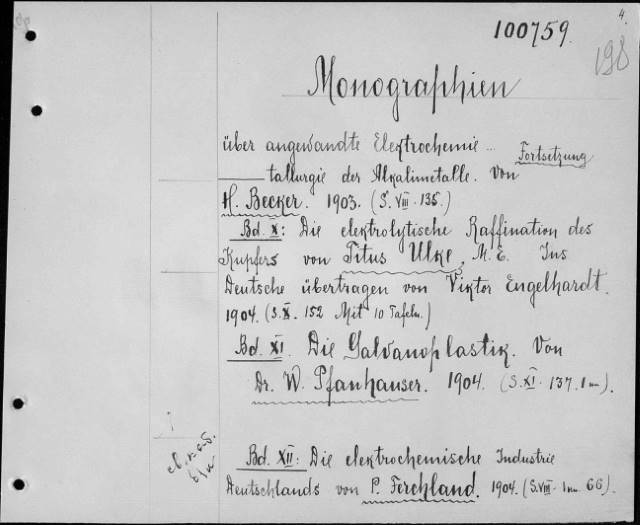 100759.
4.
198
Monographien
über angewandte Elektrochemie ... Fortsetzung
tallurgie der Alkalimetalle. Von
H. Becker. 1903. (S. VIII. 135.)
Bd. X: Die elektrolytische Raffination des
Kupfers von Titus Ulke, M. E. Ins
Deutsche übertragen von Viktor Engelhardt.
1904. (S. X. 152 Mit 10 Tafeln.)
Bd. XI. Die Galvanoplastik. Von
Dr. W. Pfanhauser. 1904. (S. XI. 137. 1 nn.)
Bd. XII: Die elektrochemische Industrie
Deutschlands von P. Ferchland. 1904. (S. VIII. 1 nn. 66).